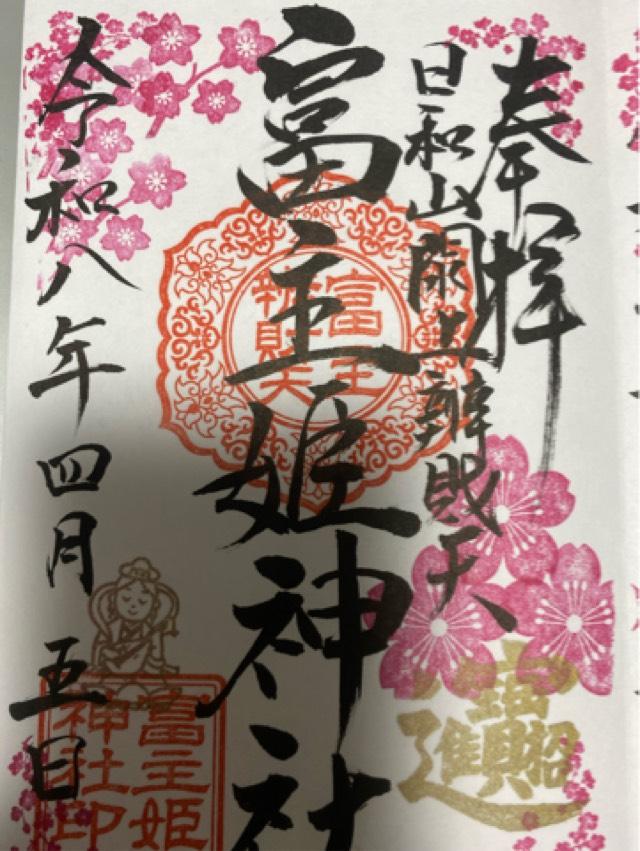 奉拝
日和山閖上辨財天
富主姫神社
令和八年四月五日
富主
辨財天
富主姫
神社印
招財進寶